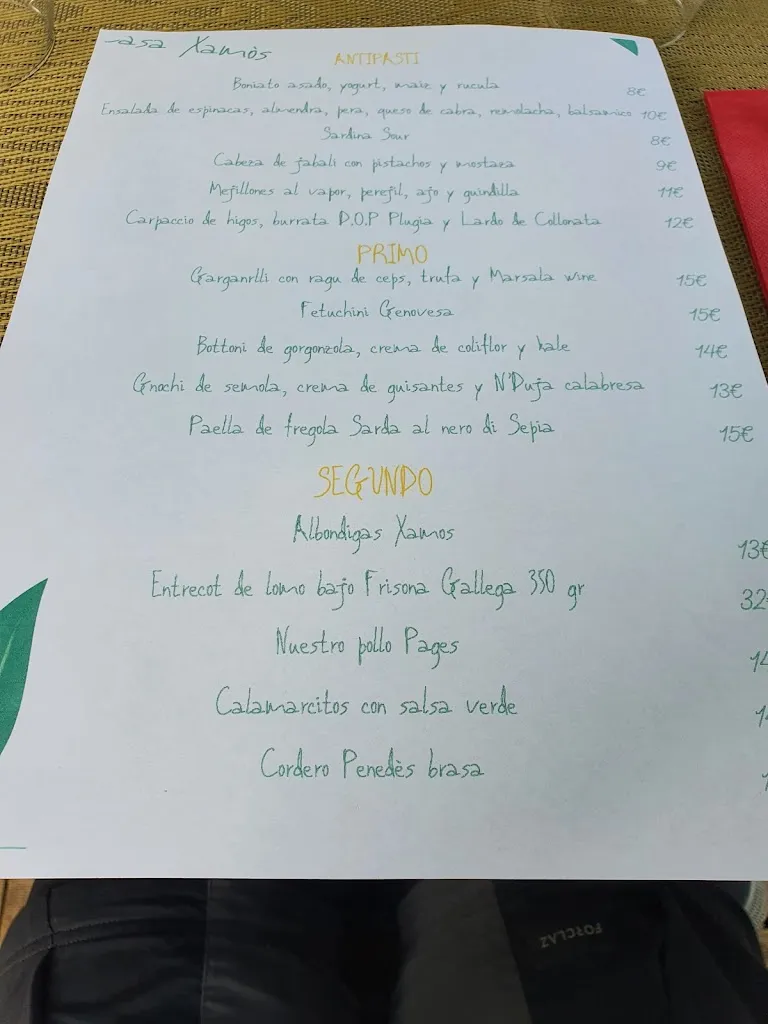 asa Xamòs
ANTIPASTI
Boniato asado, yogurt, maiz y rucula 8€
Ensalada de espinacas, almendra, pera, queso de cabra, remolacha, balsamico 10€
Sardina Sour 8€
Cabeza de jabali con pistachos y mostaza 9€
Mejillones al vapor, perejil, ajo y guindilla 11€
Carpaccio de higos, burrata D.O.P Plugia y Lardo de Collonata 12€
PRIMO
Garganrlli con ragu de ceps, trufa y Marsala wine 15€
Fetuchini Genovesa 15€
Bottoni de gorgonzola, crema de coliflor y kale 14€
Gnochi de semola, crema de guisantes y N'Duja calabresa 13€
Paella de fregola Sarda al nero di Sepia 15€
SEGUNDO
Albondigas Xamos 13€
Entrecot de lomo bajo Frisona Gallega 350 gr 32
Nuestro pollo Pages 14
Calamarcitos con salsa verde
Cordero Penedès brasa
FORCLAZ